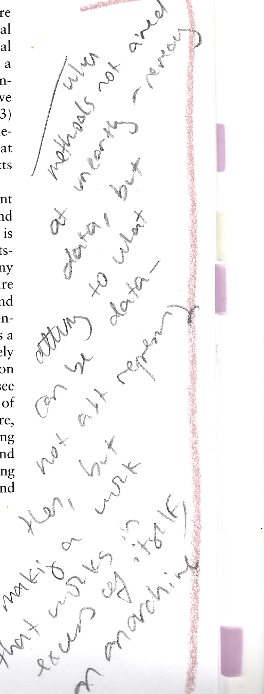 re
al
al
a
n-
ve
3)
e-
at
ts
nt
nd
is
ts-
ny
re
nd
en-
s a
ely
on
see
of
re,
ng
nd
ng
nd
why
methods not aimed
at unearthing – revealing
data, but
to what
can be data –
not abt
then, but
making a work
that works in
excess of itself,
an anarchive